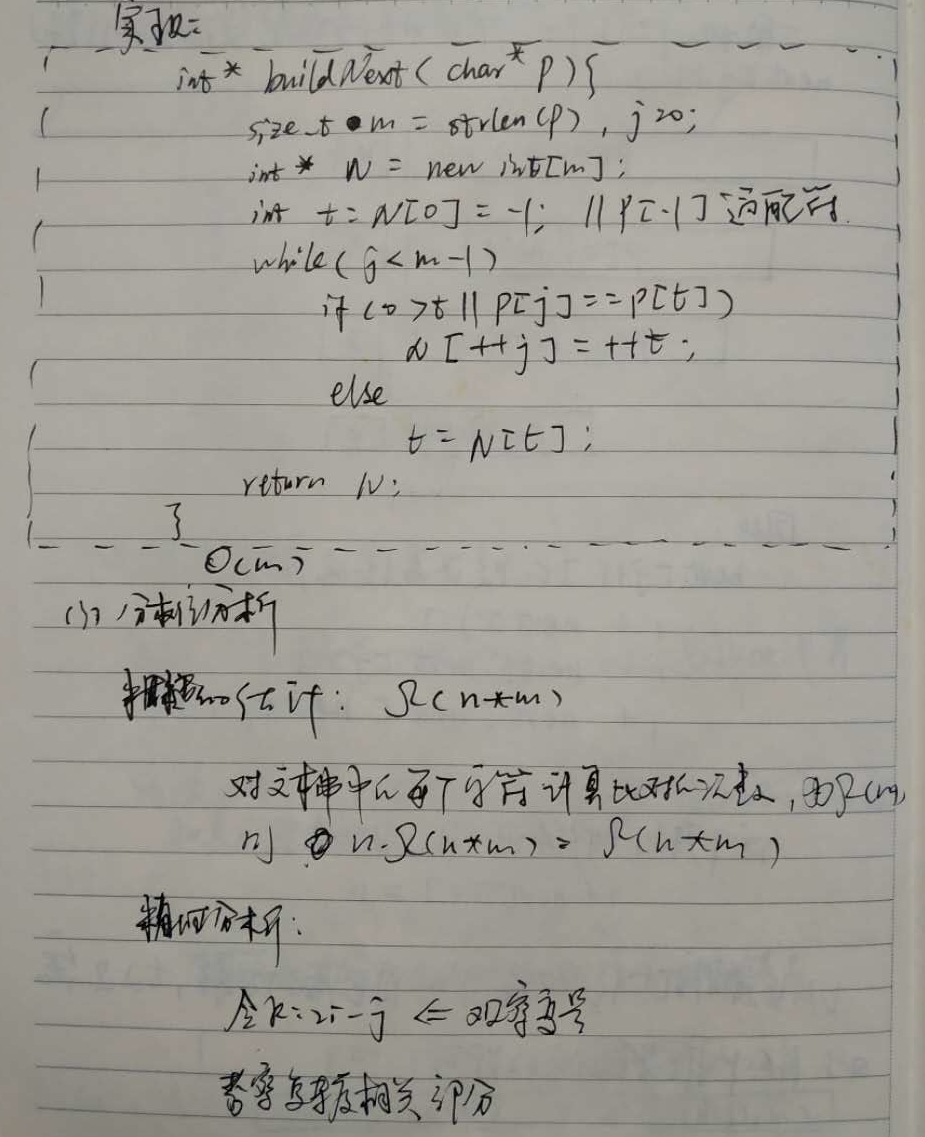 实现:
int * buildNext( char* P ){
size_t m = strlen(P), j=0;
int * N = new int[m];
int t = N[0] = -1; //P[-1] 通配符
while( j < m-1)
if (0>t || P[j]==P[t])
N[++j] = ++t;
else
t = N[t];
return N;
}
O(m)
(3) 分摊分析
粗略的估计: Ω(n*m)
对文本串中的每个字符计算比对的次数, 为Ω(m)
则 n·Ω(n*m) = Ω(n*m)
精确分析:
令k=2i-j ⇐ 观察变量
考察复杂度相关部分